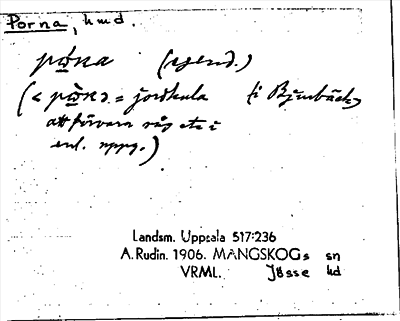 Porna, hmd.
pǫ́na (egend.)
(< pǫ̀nɔ = jordkula fi Bjurbäck,
att förvara råg etc i
enl. uppg.)
Landsm. Uppsala 517:236
A. Rudin. 1906. MANGSKOGs sn
VRML. Jösse hd